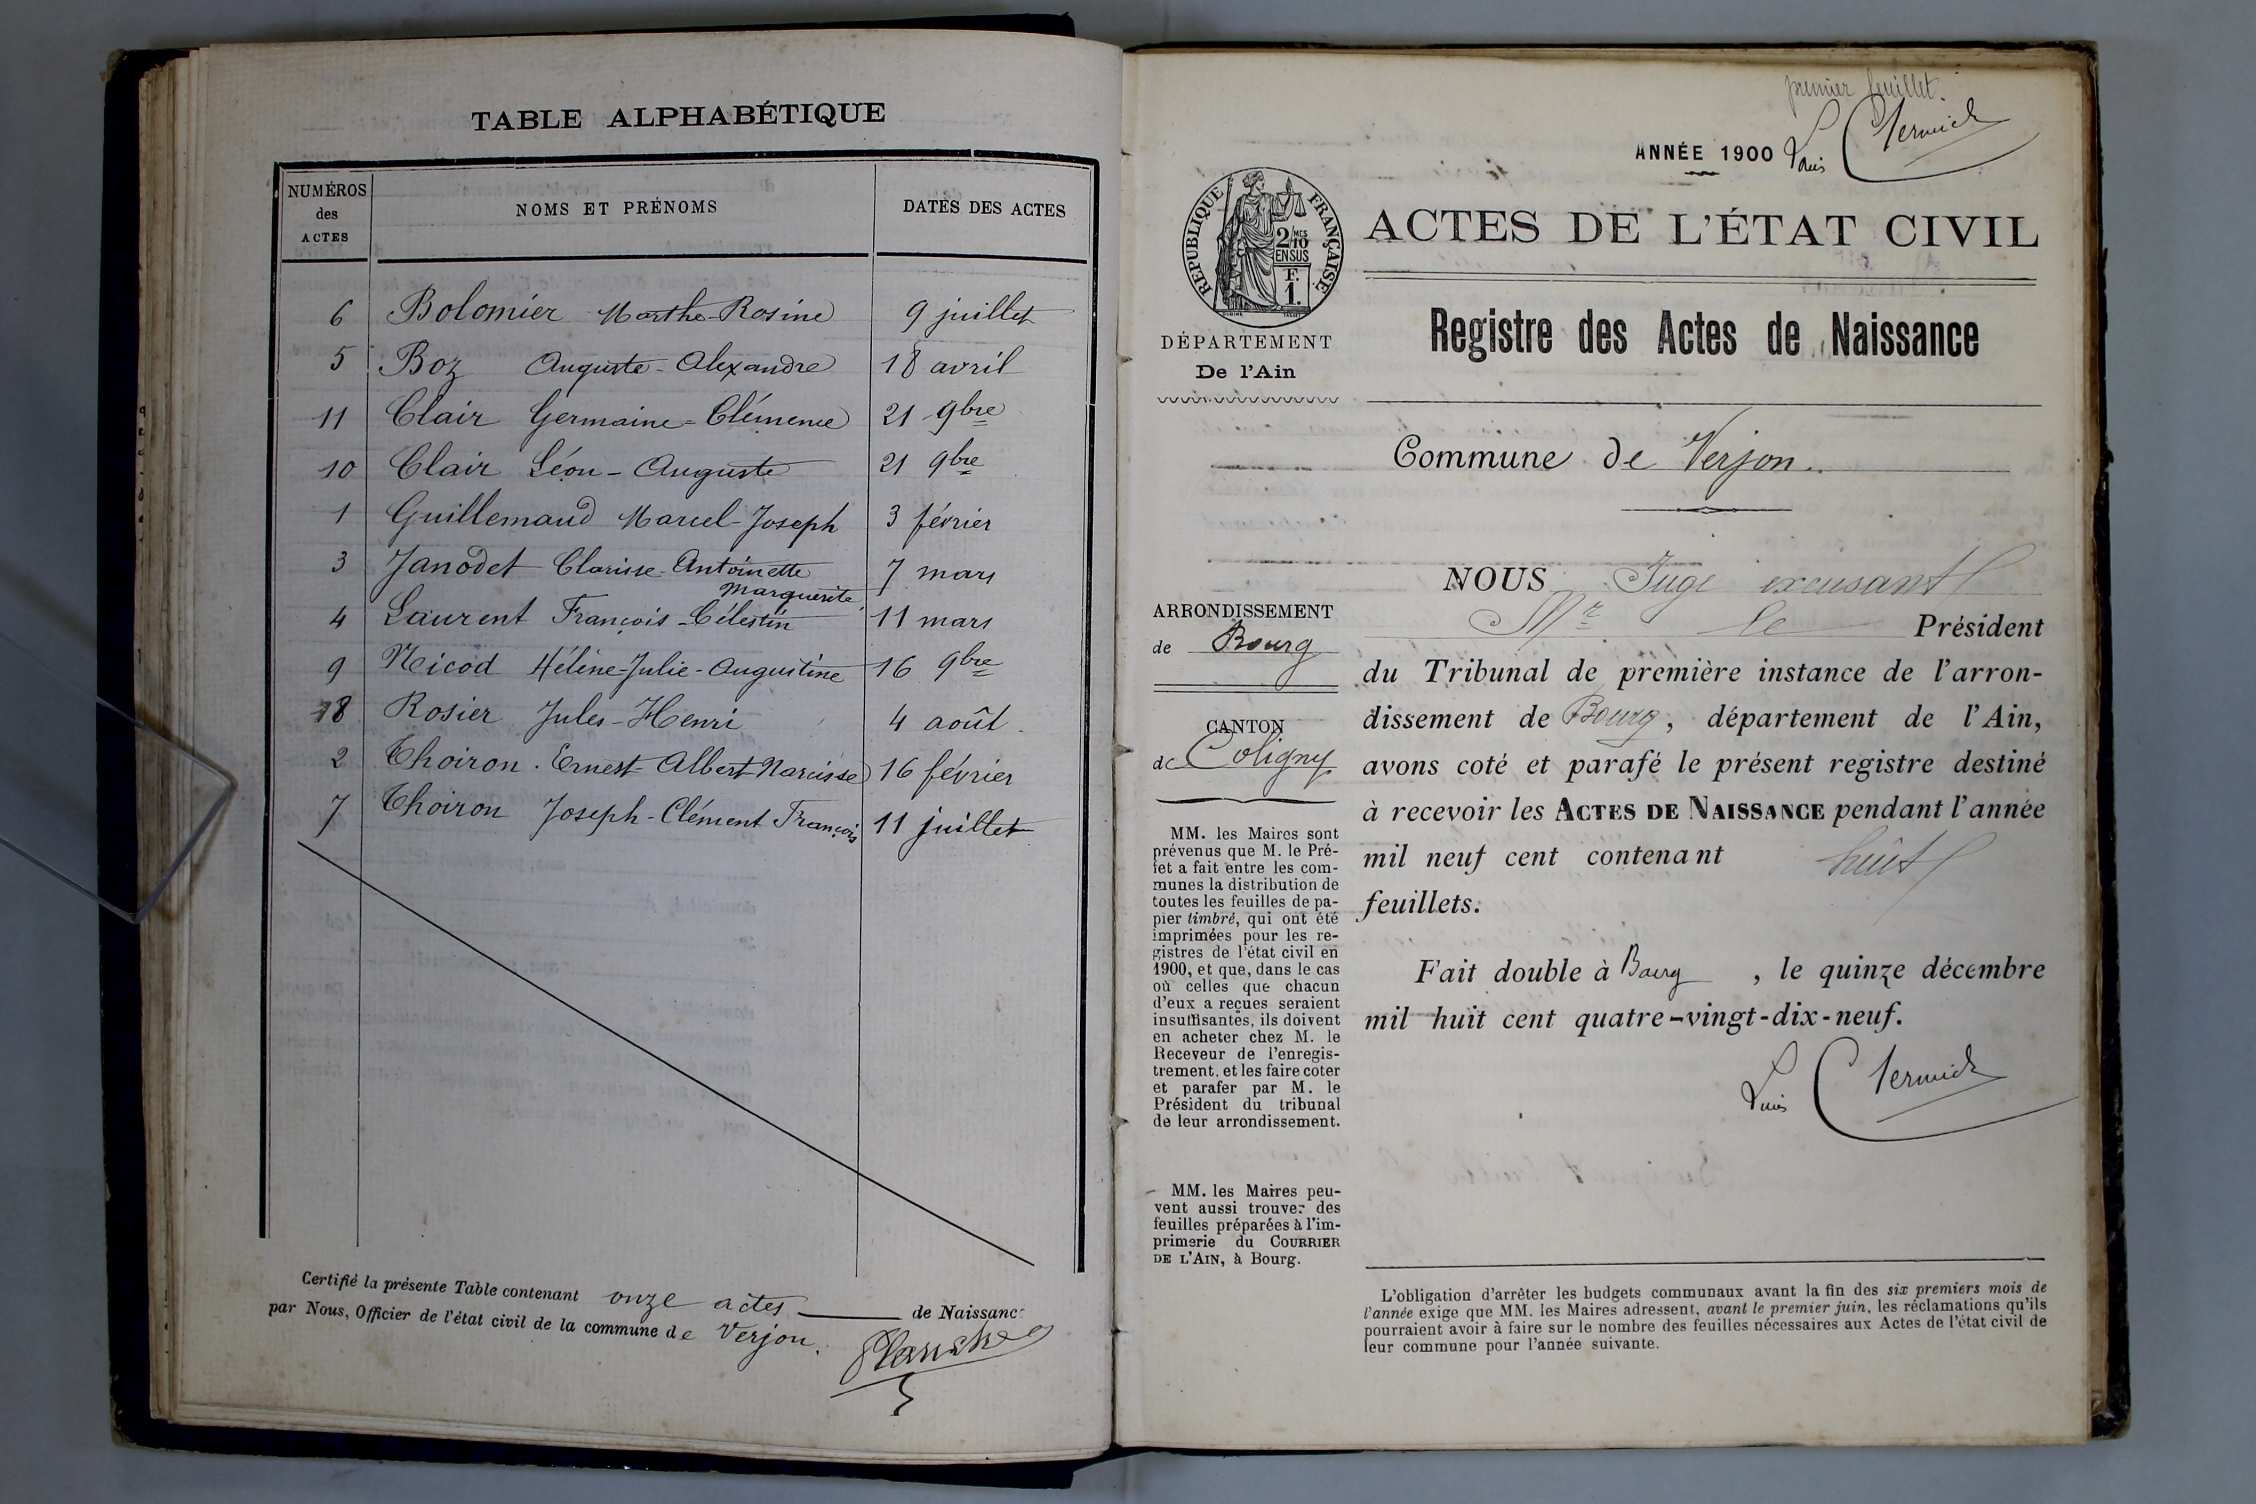 TABLE ALPHABÉTIQUE
NUMÉROS des ACTES NOMS ET PRÉNOMS DATES DES ACTES
6 Bolomier Marthe-Rosine 9 juillet
5 Boz Auguste-Alexandre 18 avril
11 Clair Germaine-Clémence 21 9bre
10 Clair Léon-Auguste 21 9bre
1 Guillemaud Marcel-Joseph 3 février
3 Janodet Clarisse-Antoinette 7 mars
Marguerite
4 Laurent François-Célestin 11 mars
9 Nicod Hélène-Julie-Augustine 16 9bre
8 Rosier Jules-Henri 4 août
2 Thoiron Ernest-Albert-Narcisse 16 février
7 Thoiron Joseph-Clément François 11 juillet
Certifié la présente Table contenant onze actes de Naissance
par Nous, Officier de l'état civil de la commune de Verjon.
premier feuillet.
ANNÉE 1900
Louis
RÉPUBLIQUE FRANÇAISE
2/10 MES
EN SUS
F.
1.
ACTES DE L'ÉTAT CIVIL
DÉPARTEMENT
De l'Ain
Registre des Actes de Naissance
Commune de Verjon.
ARRONDISSEMENT
de Bourg
CANTON
de Coligny
MM. les Maires sont
prévenus que M. le Pré-
fet a fait entre les com-
munes la distribution de
toutes les feuilles de pa-
pier timbré, qui ont été
imprimées pour les re-
gistres de l'état civil en
1900, et que, dans le cas
où celles que chacun
d'eux a reçues seraient
insuffisantes, ils doivent
en acheter chez M. le
Receveur de l'enregis-
trement. et les faire coter
et parafer par M. le
Président du tribunal
de leur arrondissement.
MM. les Maires peu-
vent aussi trouver des
feuilles préparées à l'im-
primerie du COURRIER
DE L'AIN, à Bourg.
NOUS Juge excusant
Mr le Président
du Tribunal de première instance de l'arron-
dissement de Bourg, département de l'Ain,
avons coté et parafé le présent registre destiné
à recevoir les ACTES DE NAISSANCE pendant l'année
mil neuf cent contenant huit
feuillets.
Fait double à Bourg, le quinze décembre
mil huit cent quatre-vingt-dix-neuf.
Louis
L'obligation d'arrêter les budgets communaux avant la fin des six premiers mois de
l'année exige que MM. les Maires adressent, avant le premier juin, les réclamations qu'ils
pourraient avoir à faire sur le nombre des feuilles nécessaires aux Actes de l'état civil de
leur commune pour l'année suivante.